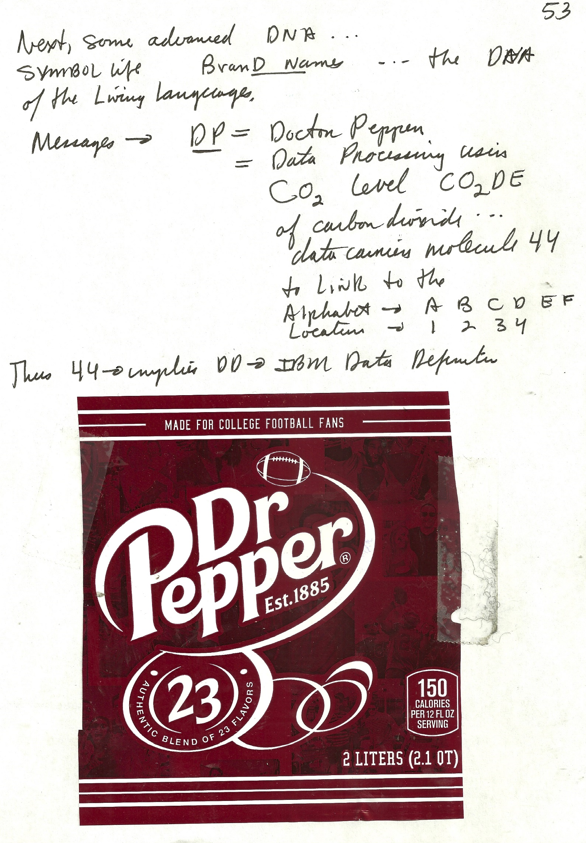 53
Next, some advanced DNA ...
SYMBOL life BranD Names ... the DNA
of the Living Languages.
Messages → DP = Doctor Pepper
= Data Processing using
CO2 level CO2DE
of carbon dioxide ...
data carriers molecule 44
to Link to the
Alphabet → A B C D E F
Location → 1 2 3 4
Thus 44 → implies DD → IBM Data
MADE FOR COLLEGE FOOTBALL FANS
Dr
Pepper®
Est.1885
23
AUTHENTIC BLEND OF 23 FLAVORS
150
CALORIES
PER 12 FL OZ
SERVING
2 LITERS (2.1 QT)